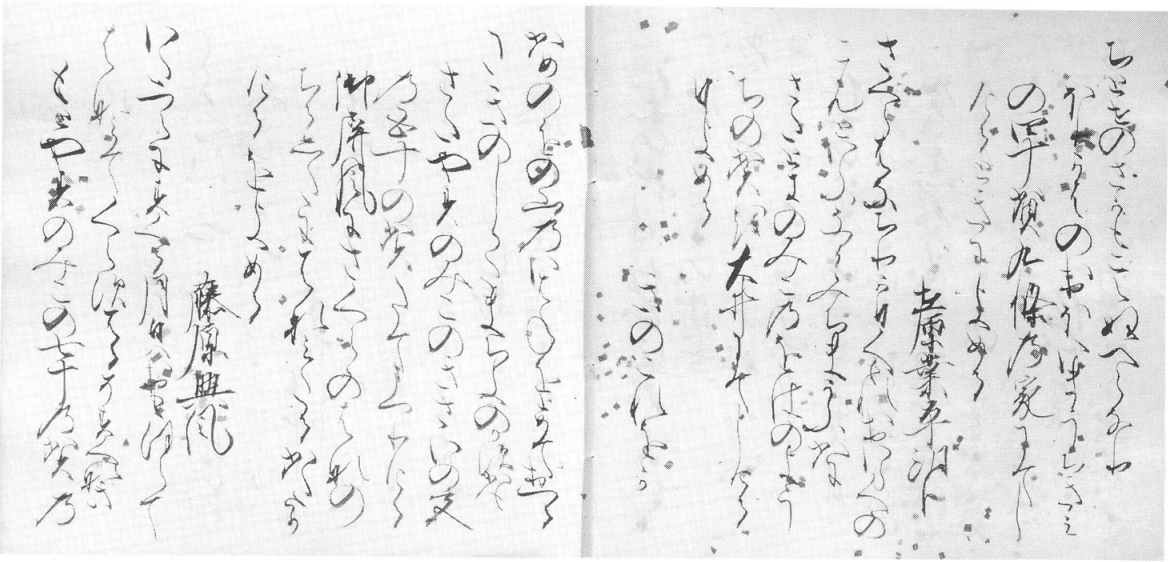 ちとせのさかもこえぬへらなり
ほりかはのおほいまうちきみ
の四十賀九條乃家にてし
けるときによめる
在原業平朝臣
さくらはなちりかひくもれおいらくの
こむといふなるみちまかふかに
さたときのみこ乃をはのよそ
ちの賀を大井にてしける
日よめる
きのこれをか
かめのをの山乃いはねをとめておつる
たきのしらたまちよのかすかも
さたやすのみこのきさいの宮
乃五十の賀たてまつりける
御屏風にさくらのはなの
ちるしたに人のはなみたるかたか
けるをよめる
藤原興風
いたつらにすくす月日はおもほえて
はなみてくらす春そすくなき
もとやすのみこの七十乃賀乃